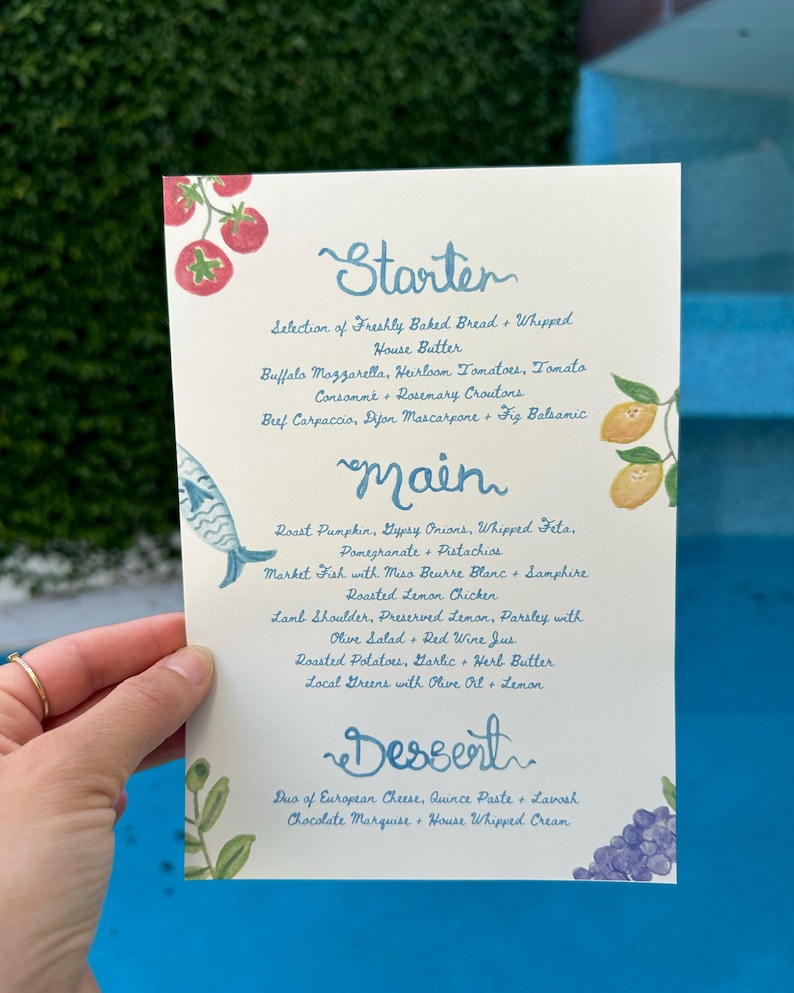 Starter
Selection of Freshly Baked Bread + Whipped
House Butter
Buffalo Mozzarella, Heirloom Tomatoes, Tomato
Consommé + Rosemary Croutons
Beef Carpaccio, Dijon Mascarpone + Fig Balsamic
Main
Roast Pumpkin, Gypsy Onions, Whipped Feta,
Pomegranate + Pistachios
Market Fish with Miso Beurre Blanc + Samphire
Roasted Lemon Chicken
Lamb Shoulder, Preserved Lemon, Parsley with
Olive Salad + Red Wine Jus
Roasted Potatoes, Garlic + Herb Butter
Local Greens with Olive Oil + Lemon
Dessert
Duo of European Cheese, Quince Paste + Lavosh
Chocolate Marquise + House Whipped Cream